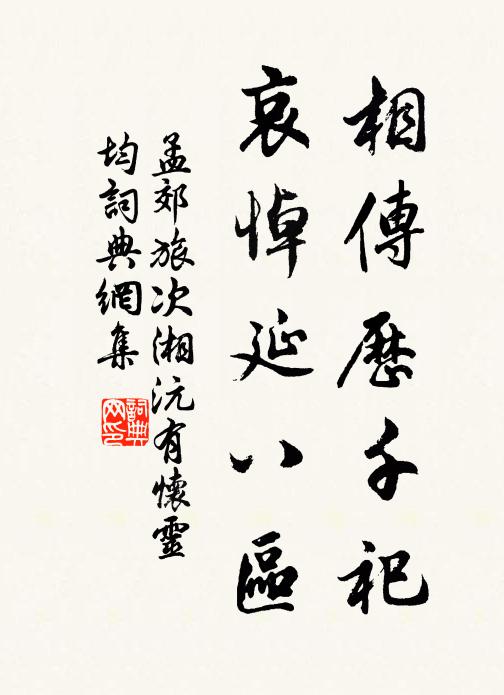 相傳歷千祀
哀悼延八區
孟郊旅次湘沅有懷靈
均詞典網集
詞典
网印